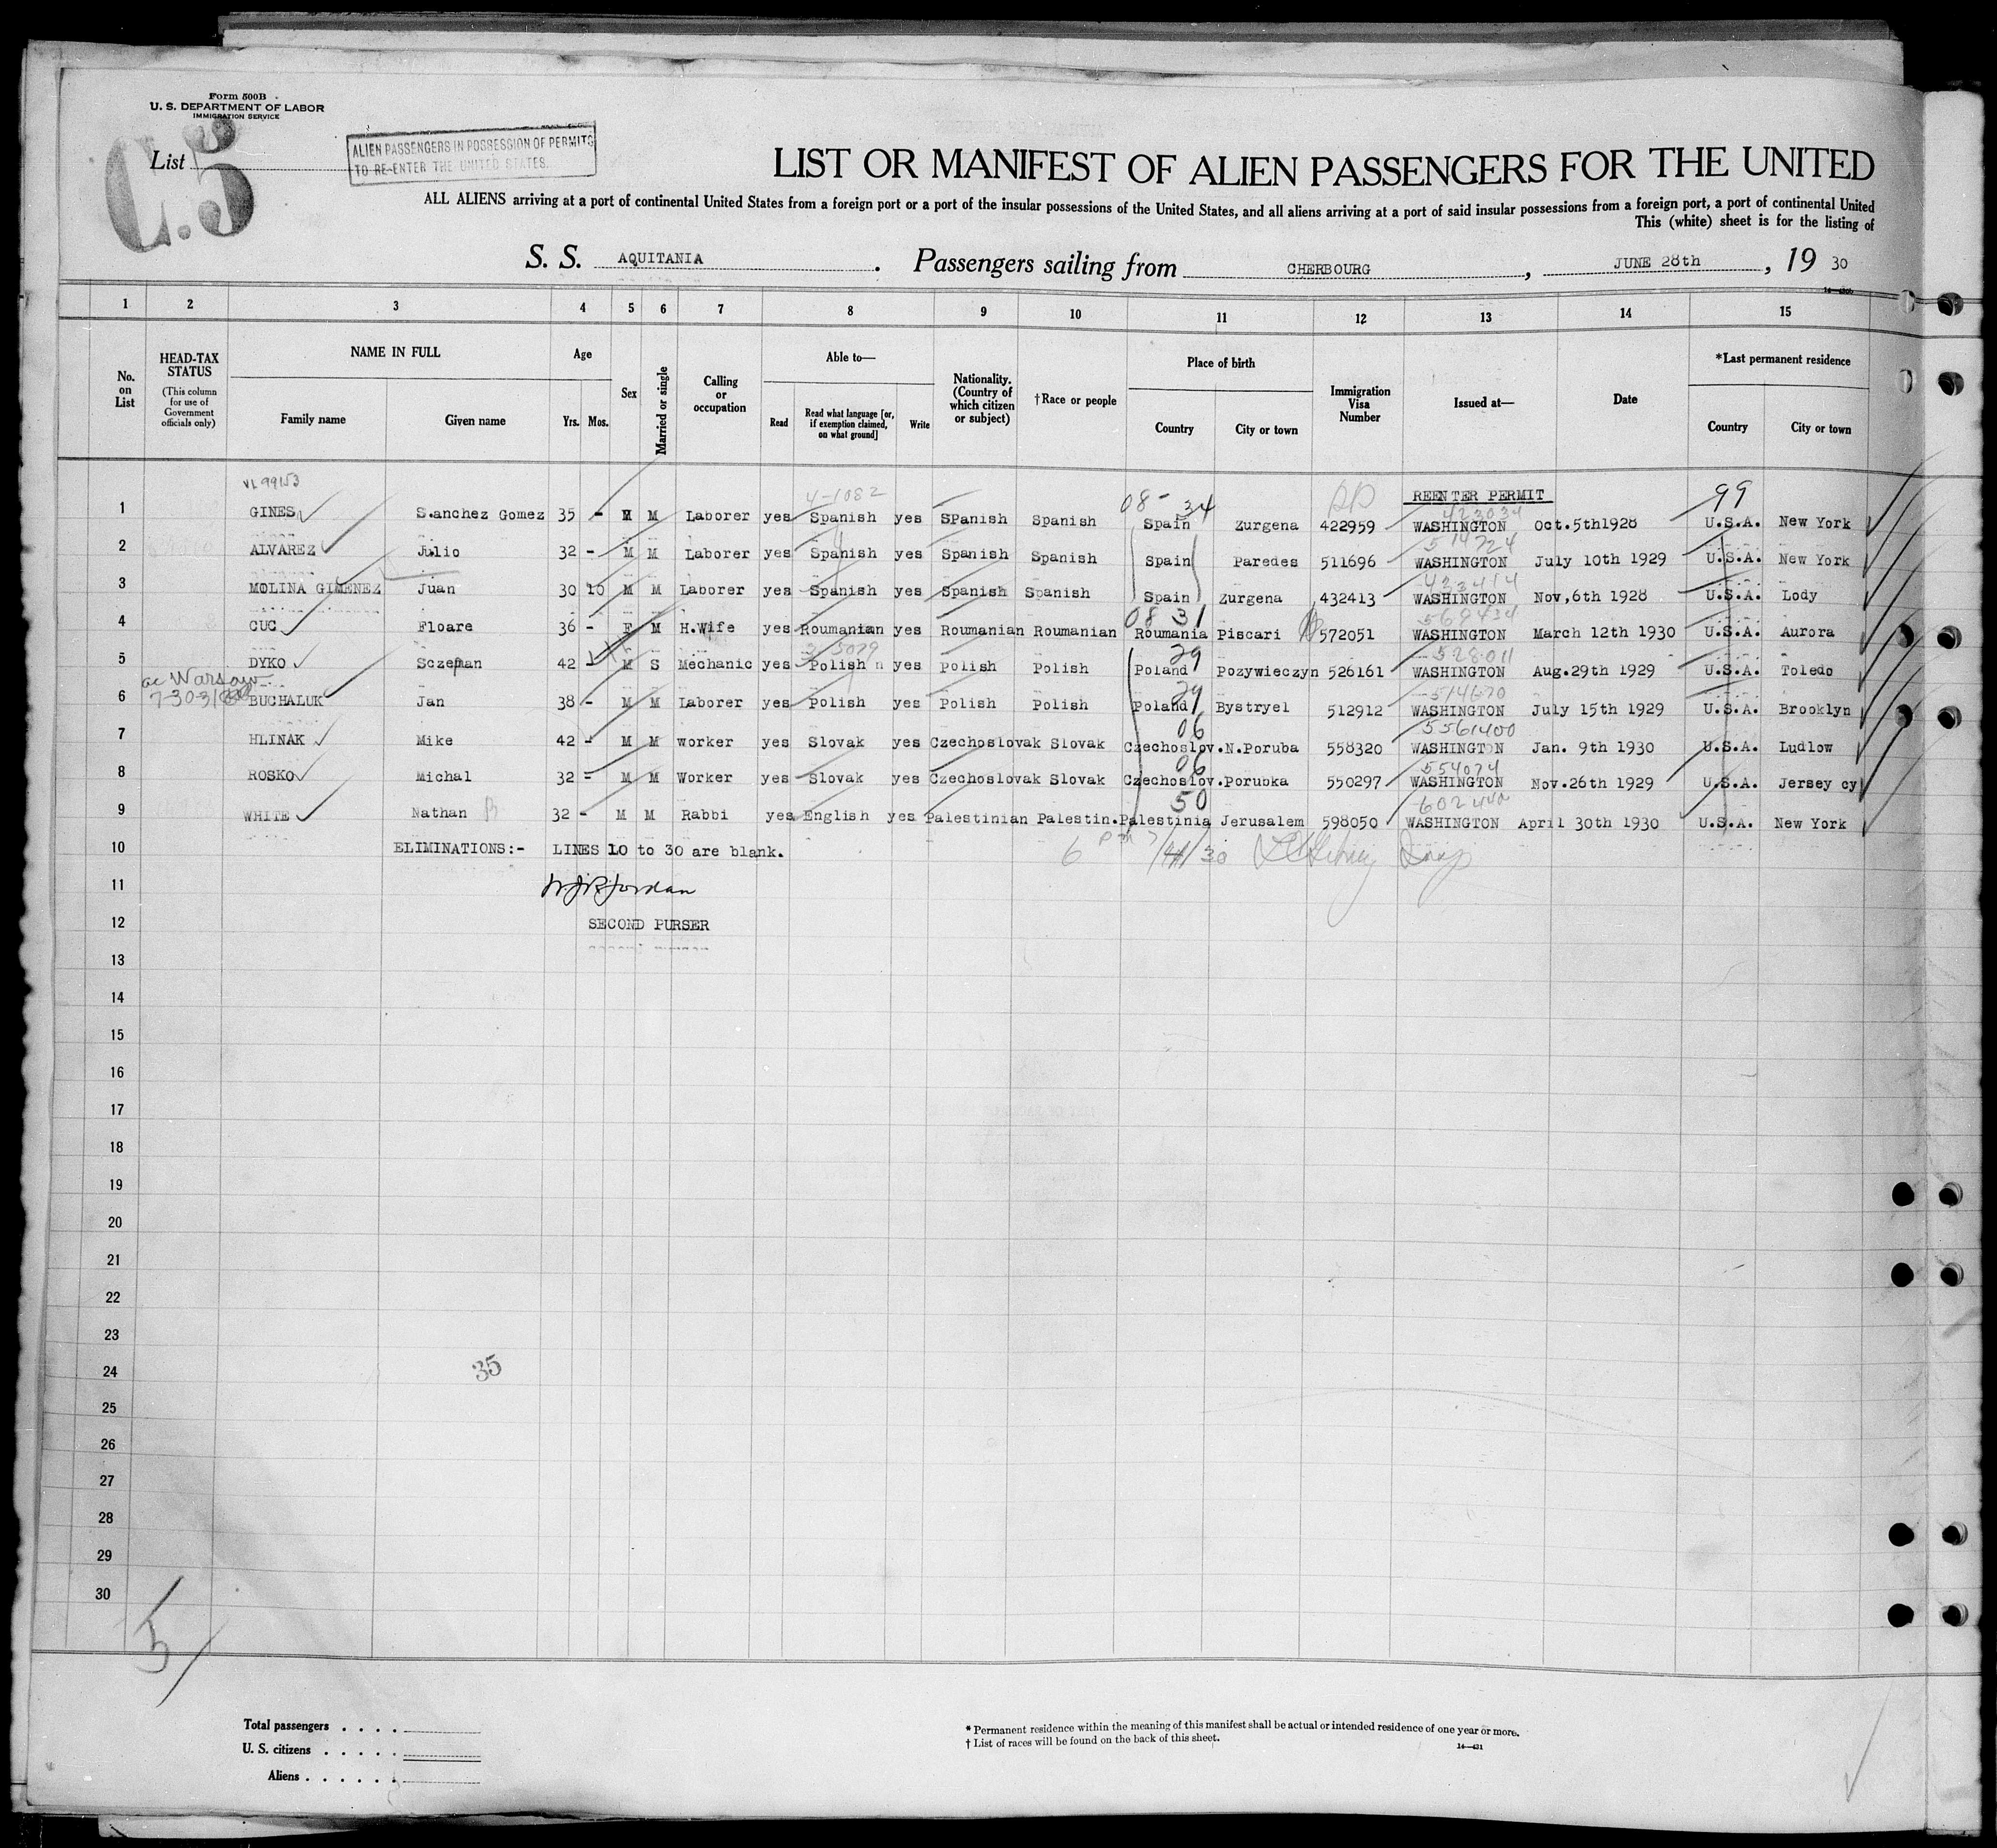 Form 500B
U. S. DEPARTMENT OF LABOR
IMMIGRATION SERVICE
List
C.5
ALIEN PASSENGERS IN POSSESSION OF PERMITS
TO RE-ENTER THE UNITED STATES.
LIST OR MANIFEST OF ALIEN PASSENGERS FOR THE UNITED
ALL ALIENS arriving at a port of continental United States from a foreign port or a port of the insular possessions of the United States, and all aliens arriving at a port of said insular possessions from a foreign port, a port of continental United
This (white) sheet is for the listing of
S. S. AQUITANIA . Passengers sailing from CHERBOURG , JUNE 28th , 19 30
1 2 3 4 5 6 7 8 9 10 11 12 13 14 15
No. on List
HEAD-TAX STATUS
(This column for use of Government officials only)
NAME IN FULL
Family name Given name
Age
Yrs. Mos.
Sex
Married or single
Calling or occupation
Able to—
Read Read what language [or, if exemption claimed, on what ground] Write
Nationality. (Country of which citizen or subject)
†Race or people
Place of birth
Country City or town
Immigration Visa Number
Issued at—
Date
*Last permanent residence
Country City or town
4-1082 08- 34 REENTER PERMIT 99
423034
1 GINES S.anchez Gomez 35 - M M Laborer yes Spanish yes SPanish Spanish Spain Zurgena 422959 WASHINGTON Oct.5th1928 U.S.A. New York
514724
2 ALVAREZ Julio 32 - M M Laborer yes Spanish yes Spanish Spanish Spain Paredes 511696 WASHINGTON July 10th 1929 U.S.A. New York
433414
3 MOLINA GIMENEZ Juan 30 10 M M Laborer yes Spanish yes Spanish Spanish Spain Zurgena 432413 WASHINGTON Nov,6th 1928 U.S.A. Lody
08 31 569434
4 CUC Floare 36 - F M H.Wife yes Roumanian yes Roumanian Roumanian Roumania Piscari 572051 WASHINGTON March 12th 1930 U.S.A. Aurora
29 528011
5 DYKO Sczepman 42 - M S Mechanic yes Polish yes Polish Polish Poland Pozywieczyn 526161 WASHINGTON Aug.29th 1929 U.S.A. Toledo
Warsaw
7-30-31 29 514670
6 BUCHALUK Jan 38 - M M Laborer yes Polish yes Polish Polish Poland Bystryel 512912 WASHINGTON July 15th 1929 U.S.A. Brooklyn
06 5561400
7 HLINAK Mike 42 - M M worker yes Slovak yes Czechoslovak Slovak Czechoslov. N.Poruba 558320 WASHINGTON Jan. 9th 1930 U.S.A. Ludlow
06 554074
8 ROSKO Michal 32 - M M Worker yes Slovak yes Czechoslovak Slovak Czechoslov. Porubka 550297 WASHINGTON Nov.26th 1929 U.S.A. Jersey cy
50
9 WHITE Nathan B 32 - M M Rabbi yes English yes Palestinian Palestin. Palestinia Jerusalem 598050 WASHINGTON April 30th 1930 U.S.A. New York
10 ELIMINATIONS:- LINES 10 to 30 are blank. 6 pm 7/4/30
11 Jordan
12 SECOND PURSER
13
14
15
16
17
18
19
20
21
22
23
24 35
25
26
27
28
29
30
5/
Total passengers . . . .
U. S. citizens . . . . .
Aliens . . . . . .
* Permanent residence within the meaning of this manifest shall be actual or intended residence of one year or more.
† List of races will be found on the back of this sheet.
14—431